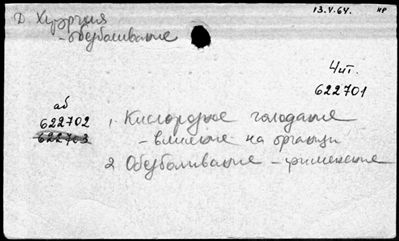 13.V.64. НР
Д. Хирургия
- обезболивание
Чит.
622701
аб
622702
622703
1. Кислородное голодание
- влияние на организм
2. Обезболивание - применение